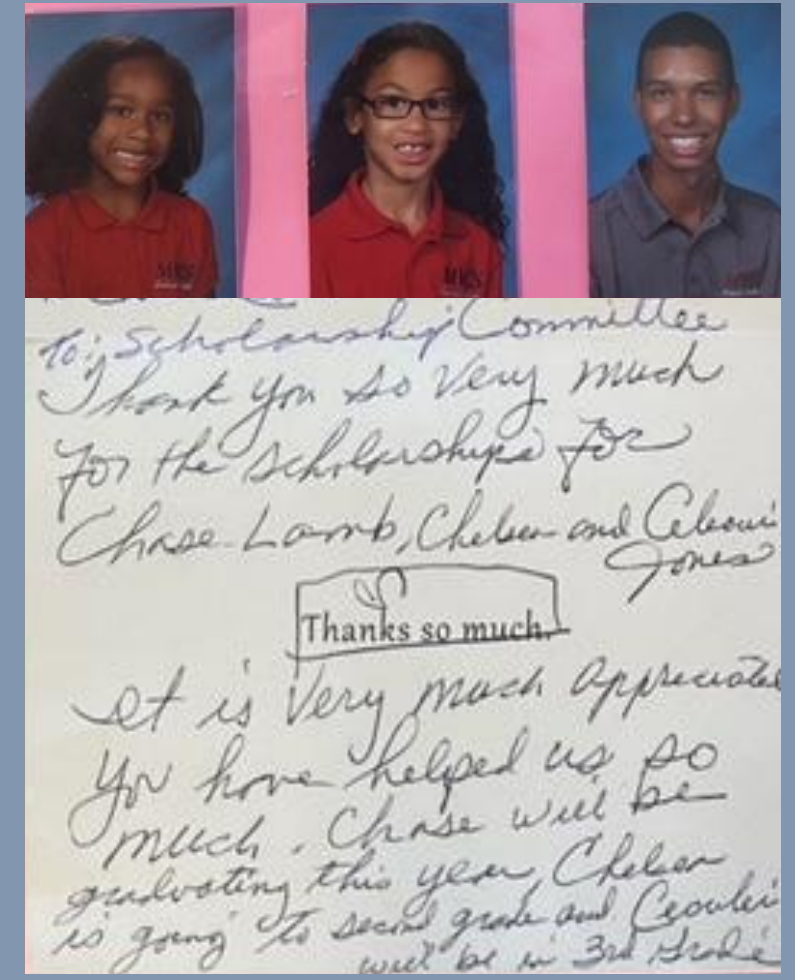 MRCS
To: Scholarship Committee
Thank you so very much
for the scholarships for
Chase Lamb, Chelsea and
Jones
Thanks so much.
It is very much appreciated
You have helped us so
much. Chase will be
graduating this year, Chelsea
is going to second grade and
will be in 3rd Grade